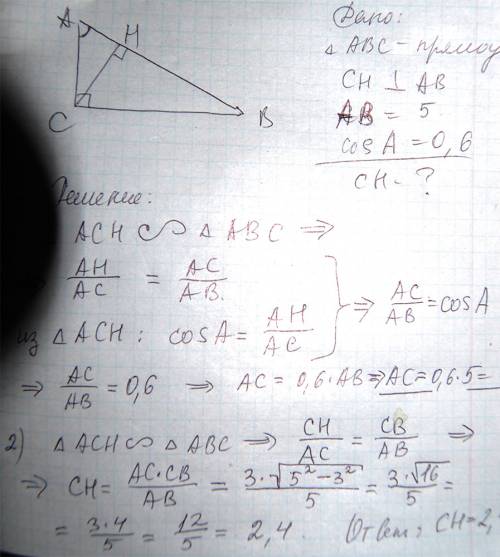 A H
C B
Дано:
△ ABC - прямоу
CH ⊥ AB
AB = 5
cos A = 0,6
CH - ?
Решение:
ACH ∽ △ ABC ⇒
AH/AC = AC/AB.
из △ ACH : cos A = AH/AC } ⇒ AC/AB = cos A
⇒ AC/AB = 0,6 ⇒ AC = 0,6·AB ⇒ AC = 0,6·5 =
2) △ ACH ∽ △ ABC ⇒ CH/AC = CB/AB ⇒
⇒ CH = AC·CB/AB = 3·√(5²-3²)/5 = 3·√16/5 =
= 3·4/5 = 12/5 = 2,4. Ответ: CH = 2,